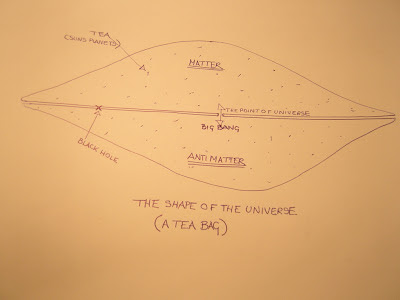 TEA
(SUNS PLANETS)
A,
MATTER
THE POINT OF UNIVERSE
BIG BANG
BLACK HOLE
ANTIMATTER
THE SHAPE OF THE UNIVERSE
(A TEA BAG)